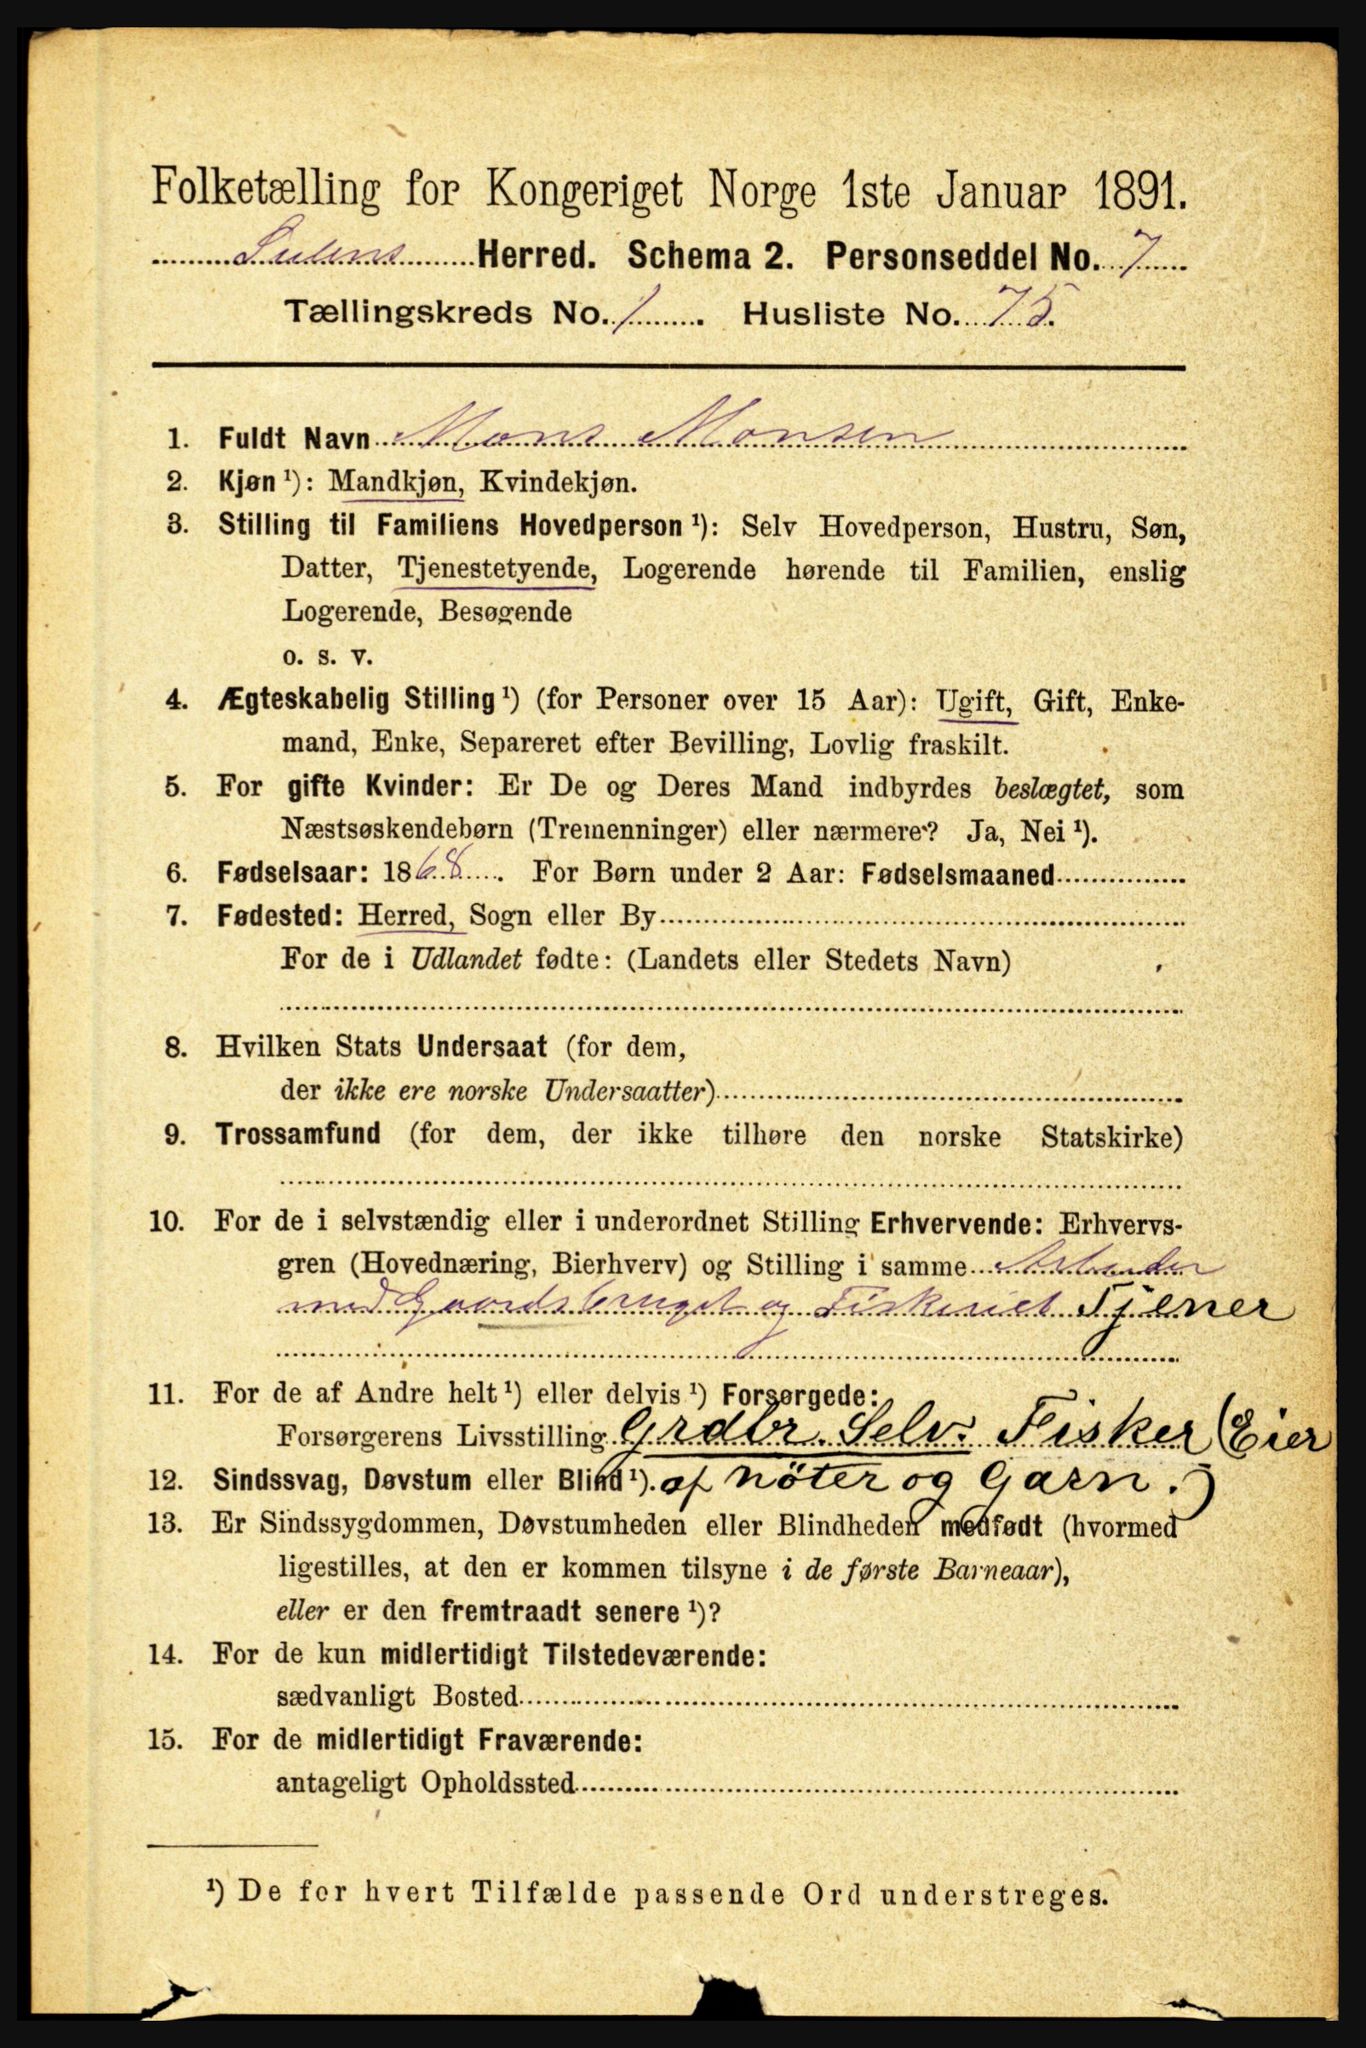 Folketælling for Kongeriget Norge 1ste Januar 1891.
Sulens Herred. Schema 2. Personseddel No. 7
Tællingskreds No. 1. Husliste No. 75.
1. Fuldt Navn Mons Monsen
2. Kjøn ¹): Mandkjøn, Kvindekjøn.
3. Stilling til Familiens Hovedperson ¹): Selv Hovedperson, Hustru, Søn,
Datter, Tjenestetyende, Logerende hørende til Familien, enslig
Logerende, Besøgende
o. s. v.
4. Ægteskabelig Stilling ¹) (for Personer over 15 Aar): Ugift, Gift, Enke-
mand, Enke, Separeret efter Bevilling, Lovlig fraskilt.
5. For gifte Kvinder: Er De og Deres Mand indbyrdes beslægtet, som
Næstsøskendebørn (Tremenninger) eller nærmere? Ja, Nei ¹).
6. Fødselsaar: 1868. For Børn under 2 Aar: Fødselsmaaned
7. Fødested: Herred, Sogn eller By
For de i Udlandet fødte: (Landets eller Stedets Navn)
8. Hvilken Stats Undersaat (for dem,
der ikke ere norske Undersaatter)
9. Trossamfund (for dem, der ikke tilhøre den norske Statskirke)
10. For de i selvstændig eller i underordnet Stilling Erhvervende: Erhvervs-
gren (Hovednæring, Bierhverv) og Stilling i samme Arbeider
med Gaardsbruget og Fiskeriet Tjener
11. For de af Andre helt ¹) eller delvis ¹) Forsørgede:
Forsørgerens Livsstilling Grdbr. Selv. Fisker (Eier
12. Sindssvag, Døvstum eller Blind ¹). af nöter og Garn.)
13. Er Sindssygdommen, Døvstumheden eller Blindheden medfødt (hvormed
ligestilles, at den er kommen tilsyne i de første Barneaar),
eller er den fremtraadt senere ¹)?
14. For de kun midlertidigt Tilstedeværende:
sædvanligt Bosted
15. For de midlertidigt Fraværende:
antageligt Opholdssted
¹) De for hvert Tilfælde passende Ord understreges.